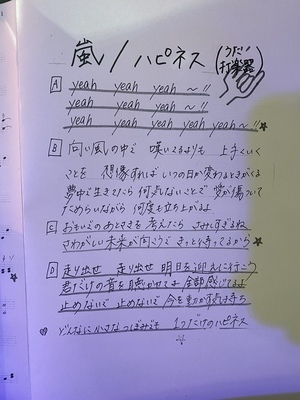 嵐/ハピネス(うたい打楽器)
A yeah yeah yeah~!!
yeah yeah yeah~!!
yeah yeah yeah yeah yeah~!!☆
B 向い風の中で 嘆いてるよりも 上手くいく
ことを 想像すれば いつの日か変わるときがくる
夢中で生きてたら 何気ないことで 愛が傷ついて
ためらいながら 何度も立ち上がるよ
C おもいでのあとさきを 考えたら さみしすぎるね
さわがしい未来が向こうで きっと待ってるから☆
D 走り出せ 走り出せ 明日を迎えに行こう
君だけの音を聴かせてよ 全部感じてるよ
止めないで 止めないで 今を動かす気持ち
♡どんなに小さなつぼみでも 1つだけのハピネス
☆